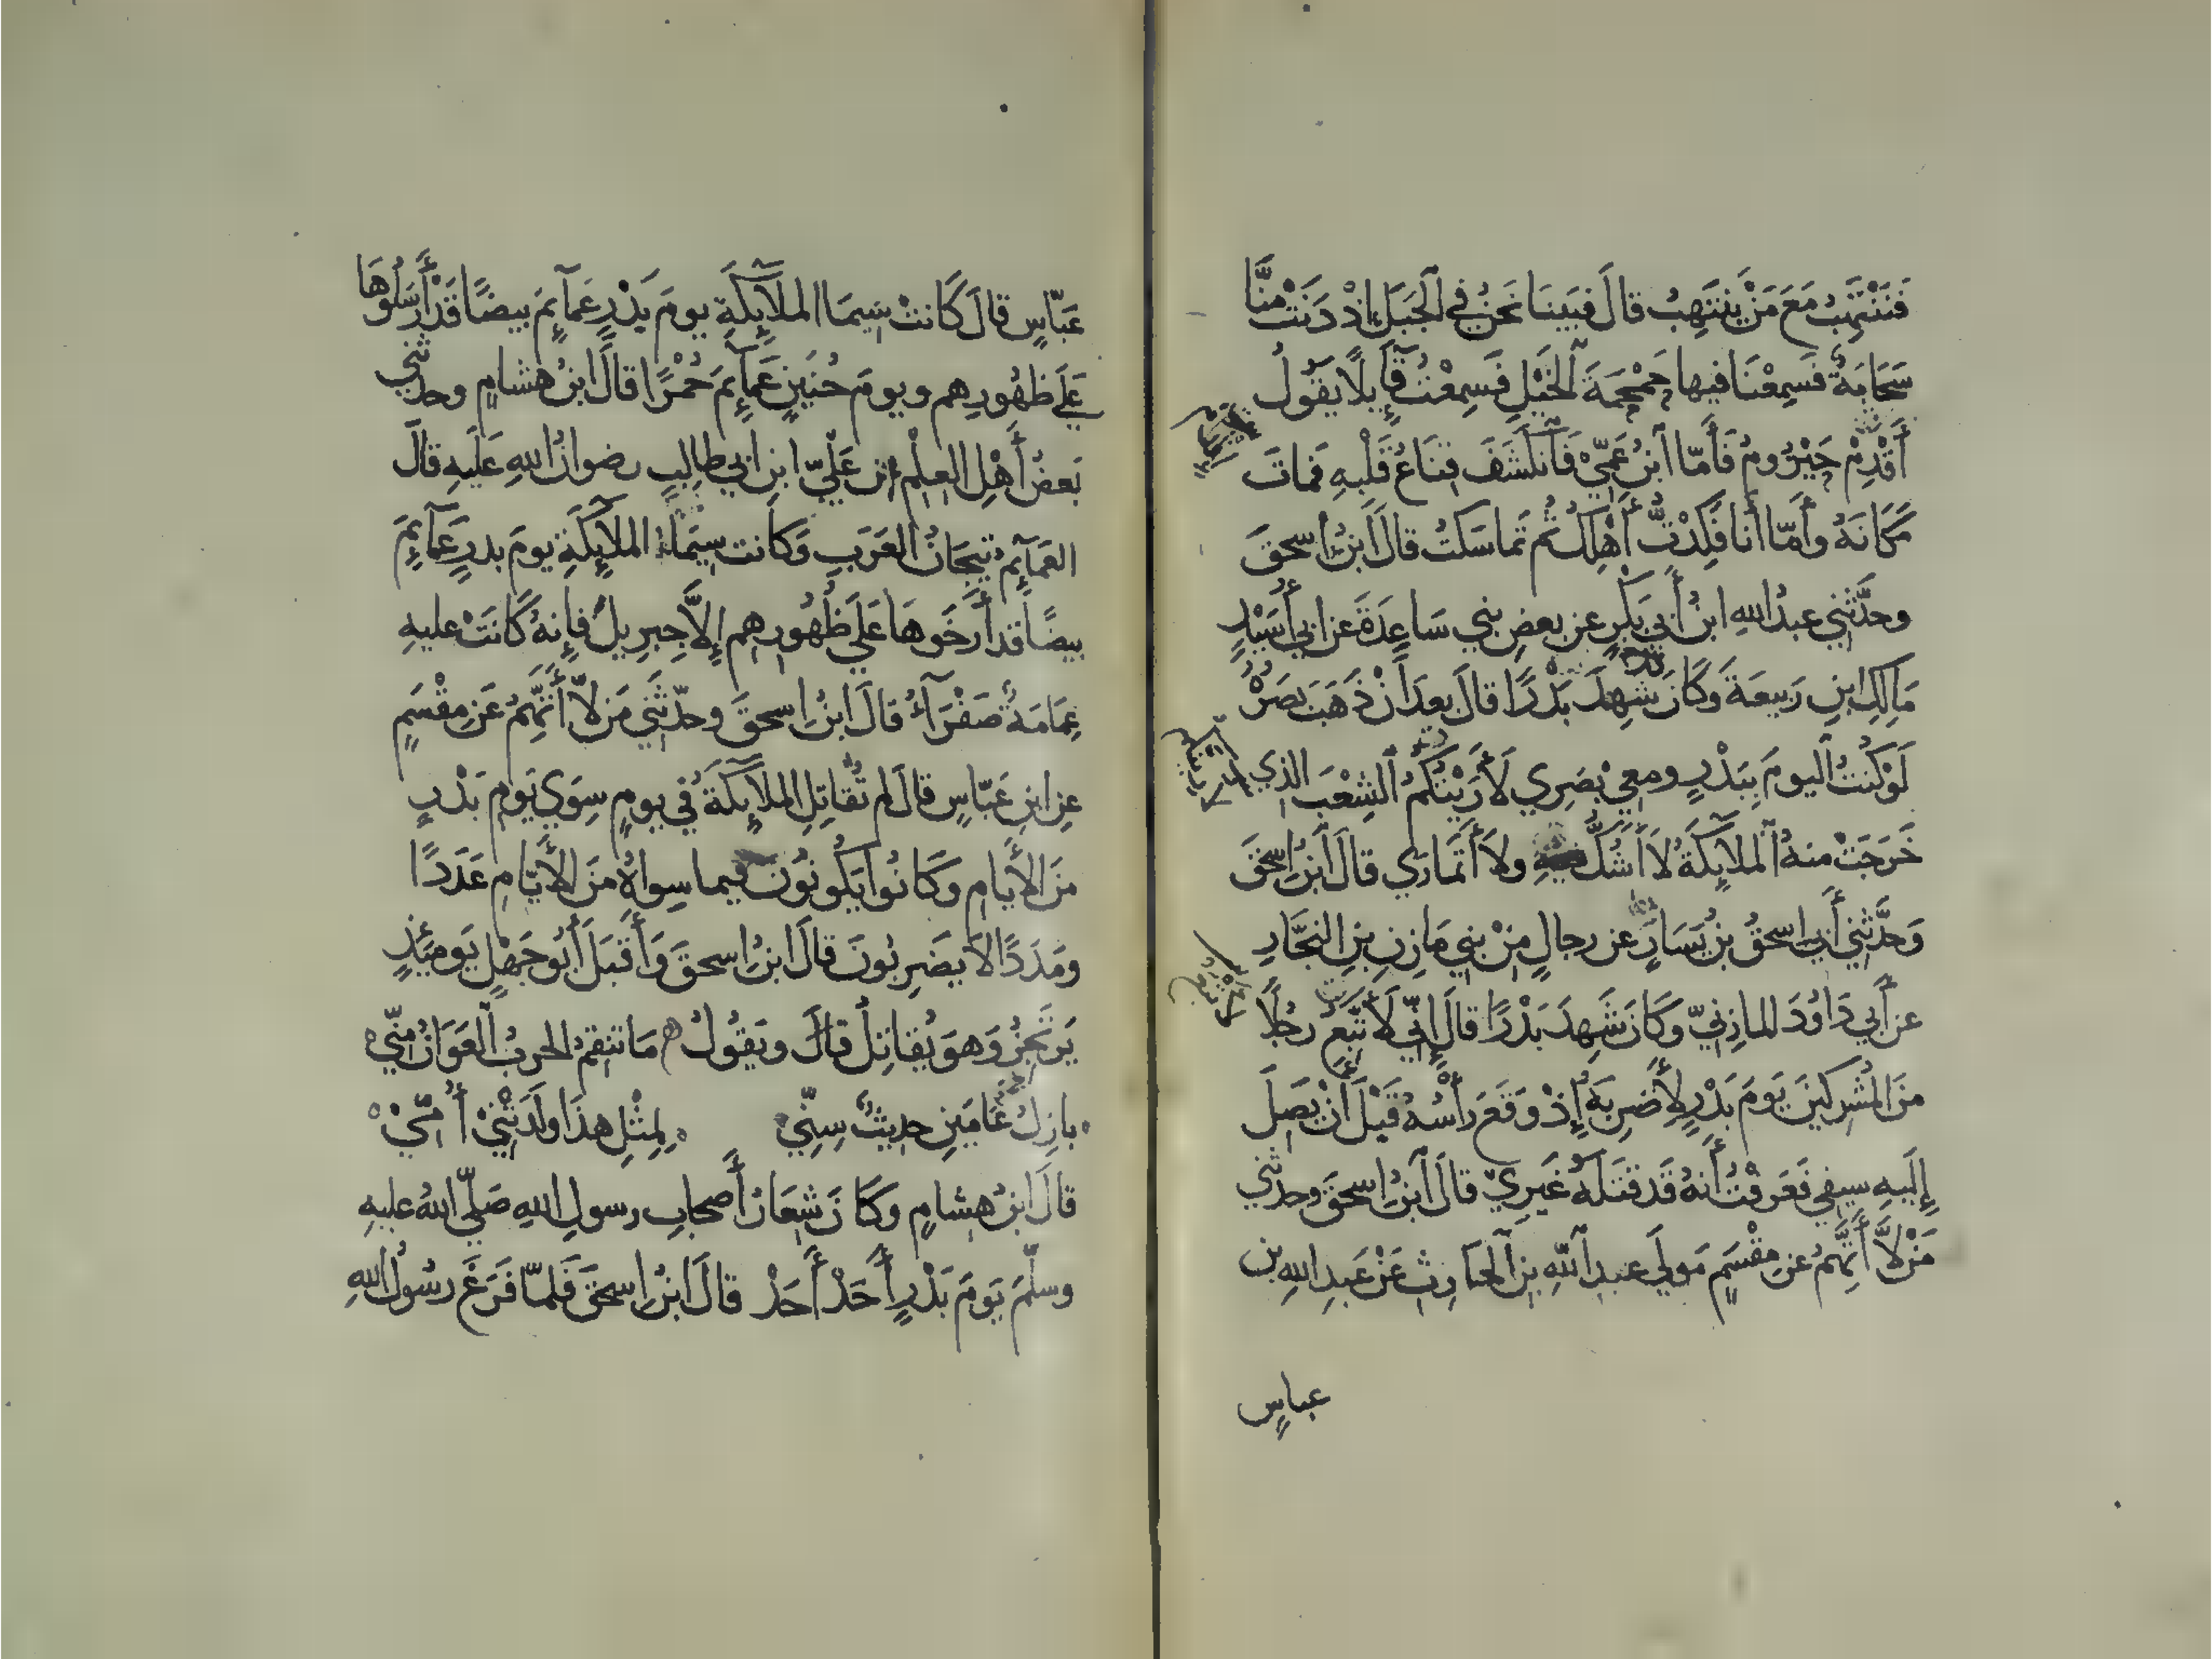 فَنَنْتَهِبُ مَعَ مَنْ يَنْتَهِبُ قالَ فبَينَا نَحنُ في الجَبَلِ اِذْ دَنَتْ مِنَّا
سَحَابَةٌ فَسَمِعْنَا فيها حَمْحَمَةَ الخَيْلِ فَسَمِعْتُ قَآئِلًا يَقُولُ
أَقْدِمْ حَيْزُومُ فَأَمّا ابنُ عَمِّيْ فَانْكَشَفَ قِنَاعُ قَلْبِهِ فَماتَ
مَكَانَهُ وأَمّا أَنا فَكِدْتُ أَهْلِكُ ثُم تَماسَكتُ قالَ ابنُ اِسحقَ
وحدَّثَنِي عبدُ اللهِ ابنُ أَبِي بَكرٍ عن بعضِ بني سَاعِدَةَ عن ابي أُسَيْدٍ
مَالِكِ ابنِ رَبِيعَةَ وكَانَ شَهِدَ بَدْرًا قالَ بعدَ اَنْ ذَهَبَ بَصَرُهُ
لَوْ كنتُ اليومَ بِبَدْرٍ ومعِي بَصَرِي لَأَرَيْتُكُمُ الشِعْبَ الذي
خَرَجَتْ منهُ الملآئِكَةُ لاَ أَشُكُّ فيهِ ولاَ أَتَمَارَي قالَ ابنُ اِسحقَ
وَحدَّثَنِي أَبِي اِسحقُ بنُ يَسَارٍ عن رجالٍ مِنْ بَنِي مَازِنِ بنِ النجَّارِ
عن أَبِي دَاوُدَ المازِنِيّ وكَانَ شَهِدَ بَدْرًا قالَ إِنِّي لَأَتَّبِعُ رجُلًا
منَ المُشرِكينَ يَومَ بَدْرٍ لِأَضرِبَهُ إِذْ وَقَعَ رأْسُهُ قَبْلَ أَنْ يَصِلَ
إِلَيهِ سيفِي فَعَرَفْتُ أَنهُ قَد قتَلَهُ غَيرِيْ قالَ ابنُ اِسحقَ وحدثني
مَنْ لاَّ أَتَّهِمُ عن مِقْسَمٍ مَولَي عبدِ اللهِ بنِ الحَارِثِ عَنْ عَبدِ اللهِ بن
عباسٍ
عَبّاسٍ قالَ كَانتْ سِيمَا الملآئِكَةِ يومَ بَدْرٍ عَمَآئِمَ بيضًا قَدْ أَرسَلُوهَا
عَلَي ظهُورِهم ويومَ حُنَينٍ عَمَآئِمَ حُمْرًا قالَ ابنُ هشامٍ وحدثني
بَعضُ أَهْلِ العِلْمِ ان عَلِيّ ابنِ ابي طالِبٍ رضوانُ اللهِ عَلَيهِ قالَ
العَمَآئِمُ تِيجَانُ العَرَبِ وكَانت سِيمَا الملآئِكَةِ يومَ بدرٍ عَمَآئِمَ
بيضًا قد أَرخَوهَا عَلَي ظُهُورِهِم إِلاَّ جِبرِيلُ فإِنهُ كَانَتْ عليهِ
عِمَامَةٌ صَفْرَآءُ قالَ ابنُ اِسحقَ وحدّثَنِي مَن لاَّ أَتَّهِمُ عَن مِقْسَمٍ
عنِ ابنِ عَبّاسٍ قالَ لم تُقاتِلِ الملآئِكَةُ في يومٍ سِوَي يَومِ بَدْرٍ
منَ الأَيامِ وكَانُوا يَكُونُونَ فيما سِواهُ منَ الأَيّامِ عَدَدًا
ومَدَدًا لا يَضرِبُونَ قالَ ابنُ اِسحقَ وَأَقبَلَ أَبُو جَهْلٍ يَومَئِذٍ
يَرتَجِزُ وَهوَ يُقاتِلُ قالَ ويَقُولُ مَا تَنقِمُ الحربُ العَوَانُ مِنِّي
بازِلُ عَامَينِ حدِيثٌ سِنِّي لِمِثْلِ هذَا ولَدَتْنِيْ أُمِّيْ
قالَ ابنُ هِشامٍ وكَانَ شِعَارُ أَصحابِ رسولِ اللهِ صَلّي اللهُ عليهِ
وسلّمَ يَومَ بَدْرٍ أَحَدْ أَحَدْ قالَ ابنُ اِسحقَ فَلمّا فَرَغَ رسُولُ اللهِ